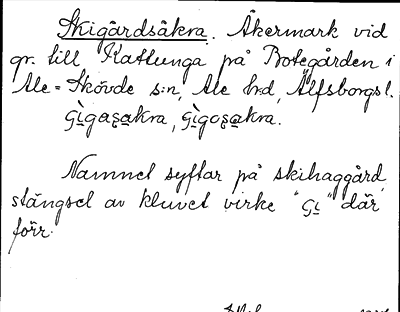 Skigårdsåkra. Åkermark vid
gr. till Katlunga på Botegården i
Ale-Skövde s:n, Ale hd, Älfsborgs l.
Namnet syftar på skihaggård,
stängsel av kluvet virke " " där
förr.